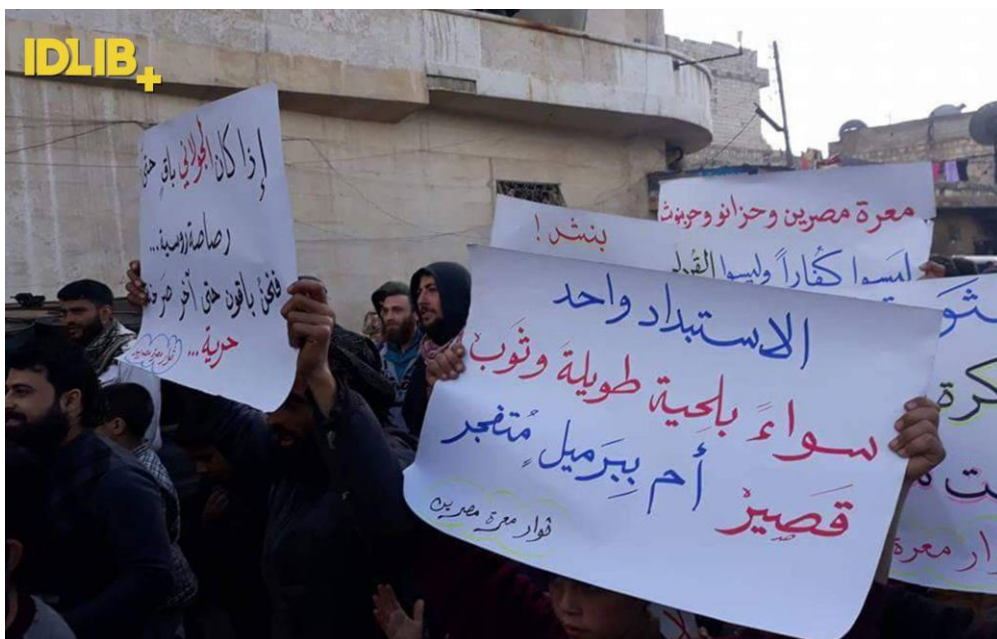 IDLIB+
إذا كان الجولاني باقٍ حتى
رصاصة روسية...
فنحن باقون حتى آخر صرخة
حرية...
بنش!
معرة مصرين وحزانو وحربنوش
ليسوا كفاراً وليسوا
الاستبداد واحد
سواءً بلحية طويلة وثوب
قصير أم ببرميل مُتفجر
ثوار معرة مصرين
معرة